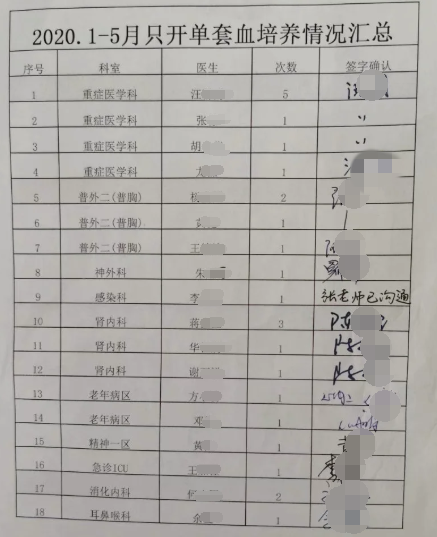 2020.1-5月只开单套血培养情况汇总
序号 科室 医生 次数 签字确认
1 重症医学科 汪 5
2 重症医学科 张 1 〃
3 重症医学科 胡 1 〃
4 重症医学科 1
5 普外二(普胸) 杨 2
6 普外二(普胸) 1
7 普外二(普胸) 王 1
8 神外科 朱 1
9 感染科 李 1 张老师已沟通
10 肾内科 蒋 3 陈
11 肾内科 华 1 陈
12 肾内科 谢 1 陈
13 老年病区 方 1
14 老年病区 邓 1
15 精神一区 黄 1
16 急诊ICU 王 1
17 消化内科 何 2
18 耳鼻喉科 余 1